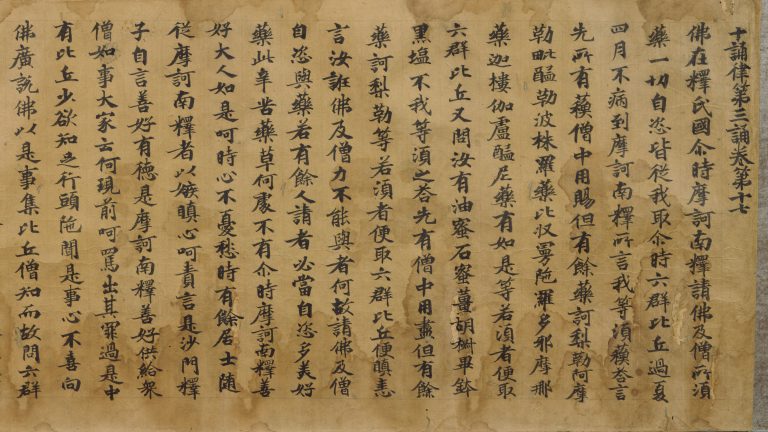 十誦律第三誦卷第十七
佛在釋氏國尒時摩訶南釋請佛及僧所湏
藥一切自恣皆從我取尒時六群比丘過夏
四月不病到摩訶南釋所言我等湏蘓荅言
先所有蘓僧中用賜但有餘藥訶梨勒阿摩
勒毗醯勒波株羅藥比牧蔓陁羅多邪摩那
藥迦樓伽盧醯尼藥有如是等若湏者便取
六群比丘又問汝有油蜜石蜜薑胡椒畢鉢
黒塩不我等湏之荅先有僧中用盡但有餘
藥訶梨勒等若湏者便取六群比丘便瞋恚
言汝誑佛及僧力不能與者何故請佛及僧
自恣與藥若有餘人請者必當自恣多美好
藥此辛苦藥草何處不有尒時摩訶南釋善
好大人如是呵時心不憂愁時有餘居士随
從摩訶南釋者以嫉瞋心呵責言是沙門釋
子自言善好有德是摩訶南釋善好供給衆
僧如事大家云何現前呵罵出其罪過是中
有比丘少欲知足行頭陁聞是事心不喜向
佛廣說佛以是事集比丘僧知而故問六群